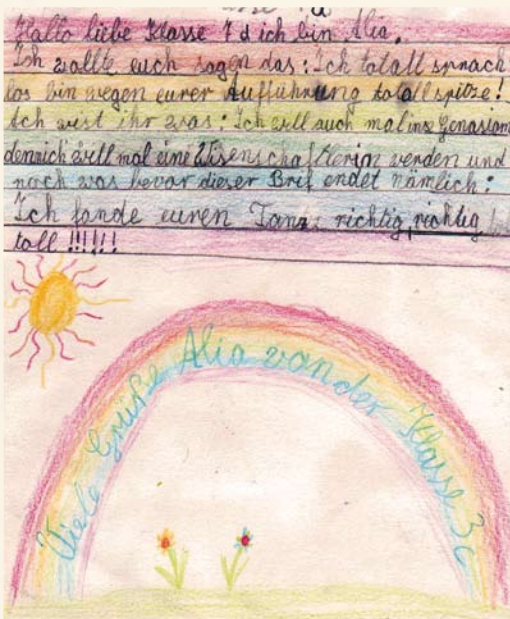 Hallo liebe Klasse 7d ich bin Alia.
Ich wollte euch sagen das: Ich totall sprach
los bin wegen eurer Aufführung totall spitze!
Ach wist ihr was: Ich will auch mal ins Genasiom
dennich will mal eine Wisenschaftlerin werden und
noch was bevor dieser Brif endet nämlich:
Ich fande euren Tanz richtig, richtig
toll !!!!!!
Viele Grüße Alia von der Klasse 3c